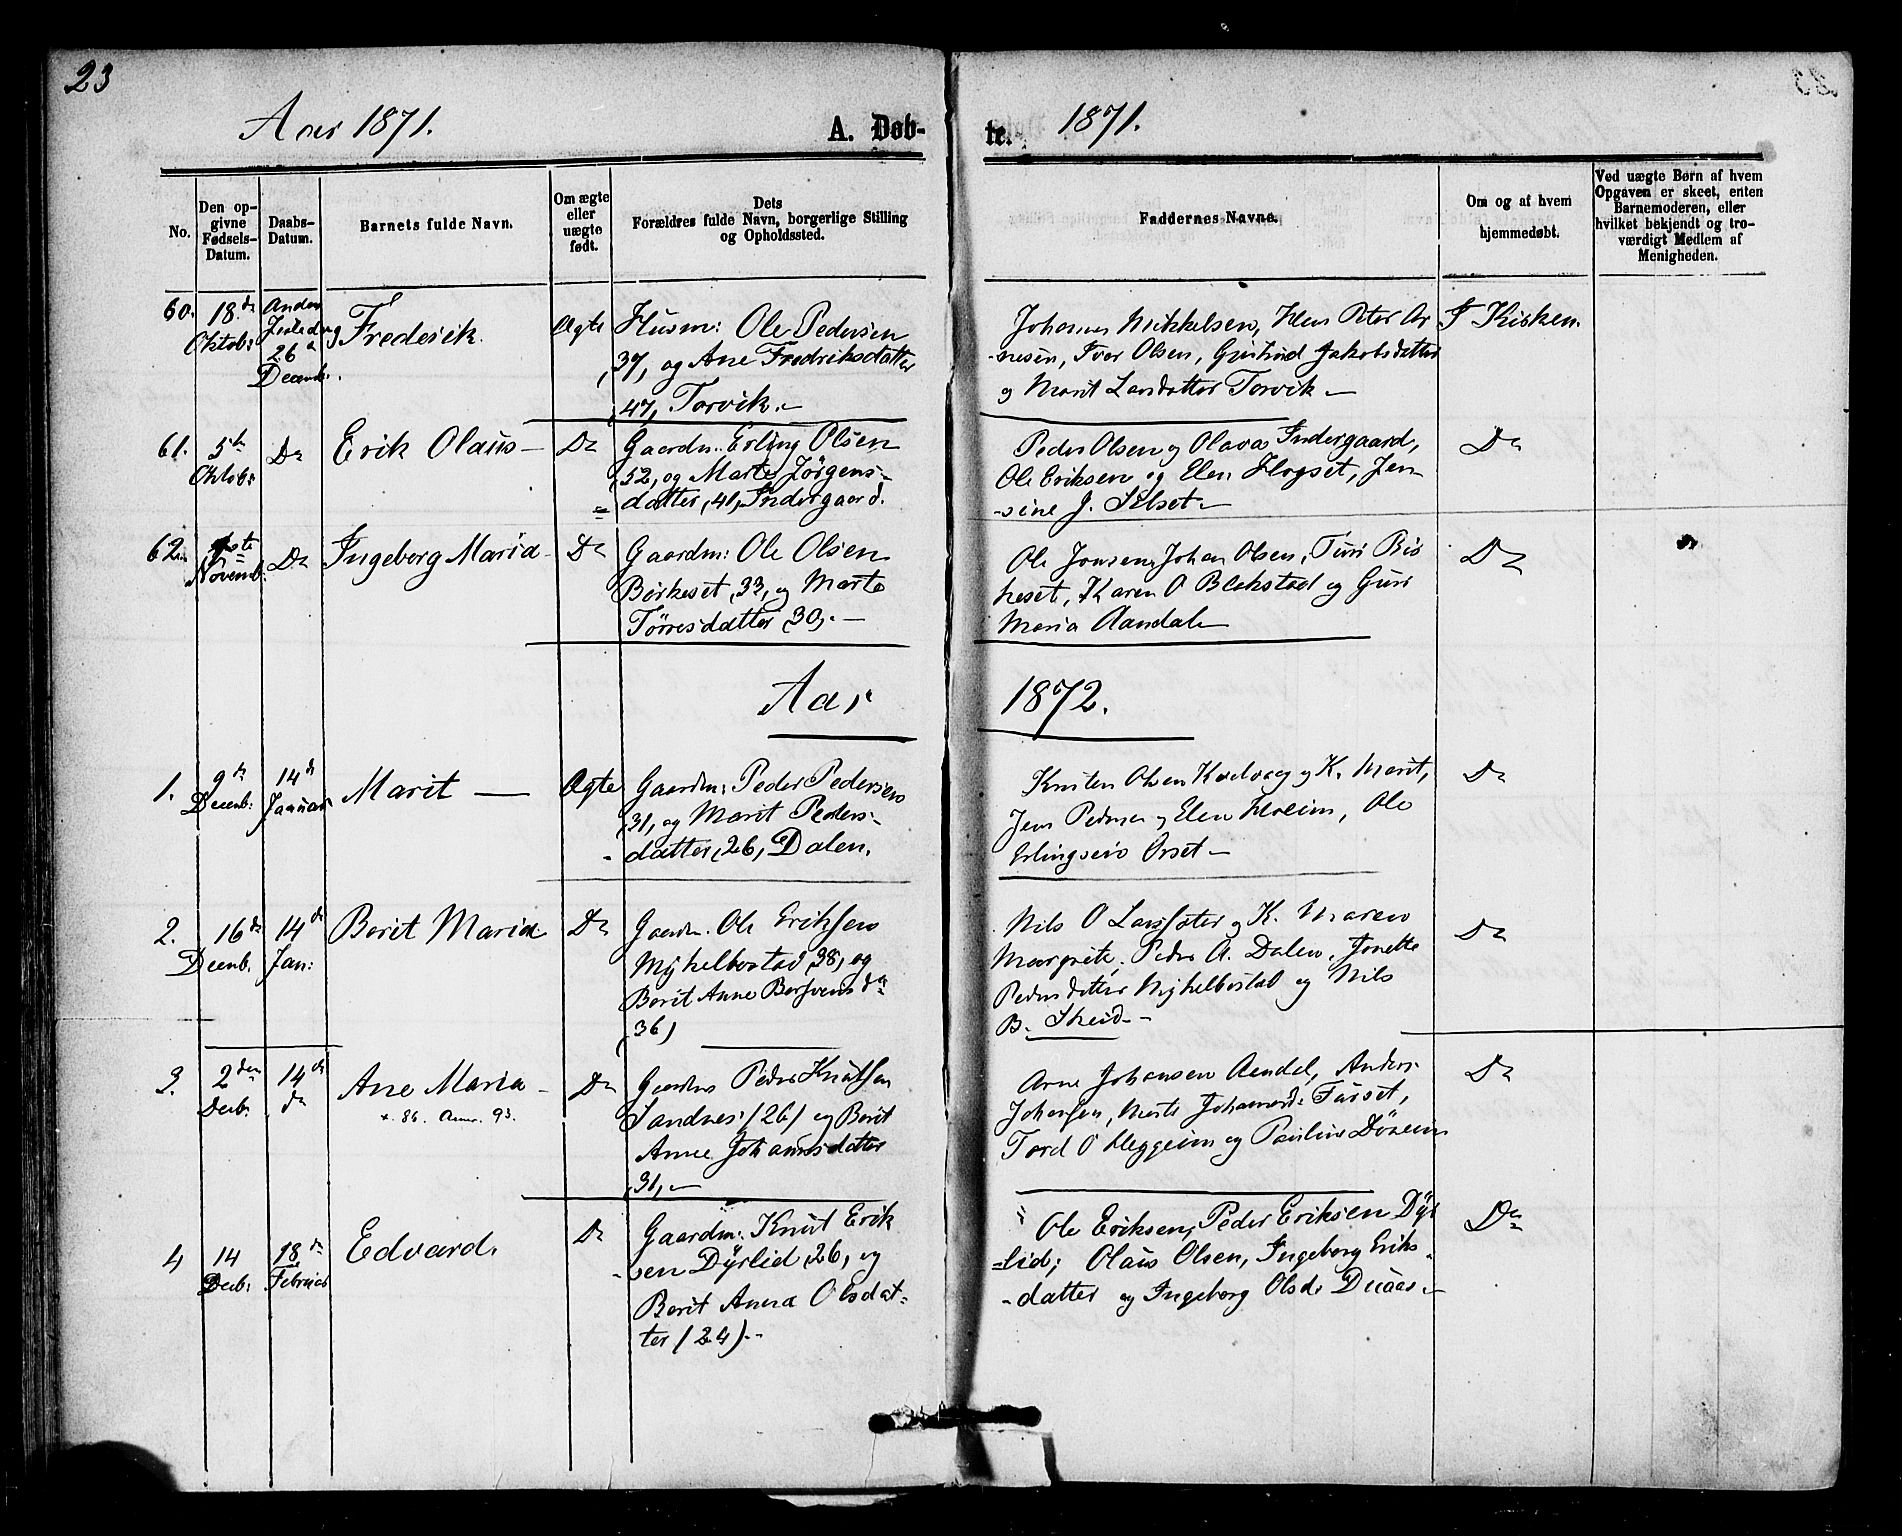 23
Aar 1871.
A. Døb-
te.
1871.
No.
Den op-
givne
Fødsels-
Datum.
Daabs-
Datum.
Barnets fulde Navn.
Om ægte
eller
uægte
født.
Dets
Forældres fulde Navn, borgerlige Stilling
og Opholdssted.
Faddernes Navne.
Om og af hvem
hjemmedøbt.
Ved uægte Børn af hvem
Opgaven er skeet, enten
Barnemoderen, eller
hvilket bekjendt og tro-
værdigt Medlem af
Menigheden.
60.
18. de
Oktob:
Anden
Juledag
26
Decemb.
Frederik.
Ægte
Husm: Ole Pedersen
,37, og Ane Fredriksdatter
,47, Torvik.–
Johannes Mikkelsen, Peter Ar
-nesen, Iver Olsen, Jakobsdatter
og Marit Larsdatter Torvik –
I Kirken.
61.
5te
Oktob:
Do
Erik Olaus –
Do
Gaardm: Erling Olsen
,52, og Marte Jørgens-
datter, 41, Indergaard.
Peder Olsen og Olava Indergaard,
Ole Eriksen og Elen Flogset, Jen-
-sine J. Silset –
Do
62.
Novemb:
Do
Ingeborg Maria –
Do
Gaardm: Ole Olsen
Birkeset, 33, og Marte
Tørresdatter, 30,. –
Ole Jonsen, Johan Olsen, Turi Bir
keset, Karen O Blakstad og Guri
Maria Aandal –
Do
Aar
1872.
1.
9 de
Decemb:
14 de
Januar
Marit —
Ægte
Gaardm: Peder Pedersen
,31, og Marit Peders-
- datter, 26, Dalen.
Knut Olsen og K. Marit,
Jens Pedersen og Elen Heleim, Ole
Erlingsen Orset –
Do
2.
16 de
Decemb.
14 de
Jan:
Berit Maria
Do
Gaardm. Ole Eriksen
Myhelbostad, 38, og
Berit Anne
,36)
Nils O og K. Maren
Margrete, Peder A. Dalen, Jonette
Pedersdatter Myhelbostad og Nils
B. Skeid. –
Do
3.
2den
Decb.
14 de
do
Ane Maria –
+. 86. Anm. 93.
Do
Gaardm Peder Knutsen
Sandnes (26) og Berit
Anne Johannesdatter
,31, –
Arne Johansen Aandal, Anders
Johansen, Marte Furset,
Tord O Heggeim og Pauline
Do
4
14
Decb:
18 de
Februar
Edvard.
Do
Gaardm: Knut Erik
-sen Dyrlid, 26, og
Berit Anna Olsdat-
ter (24).–
Ole Eriksen, Peder Eriksen Dyr
-lid; Olaus Olsen, Ingeborg Eriks-
-datter og Ingeborg Olsdr
Do